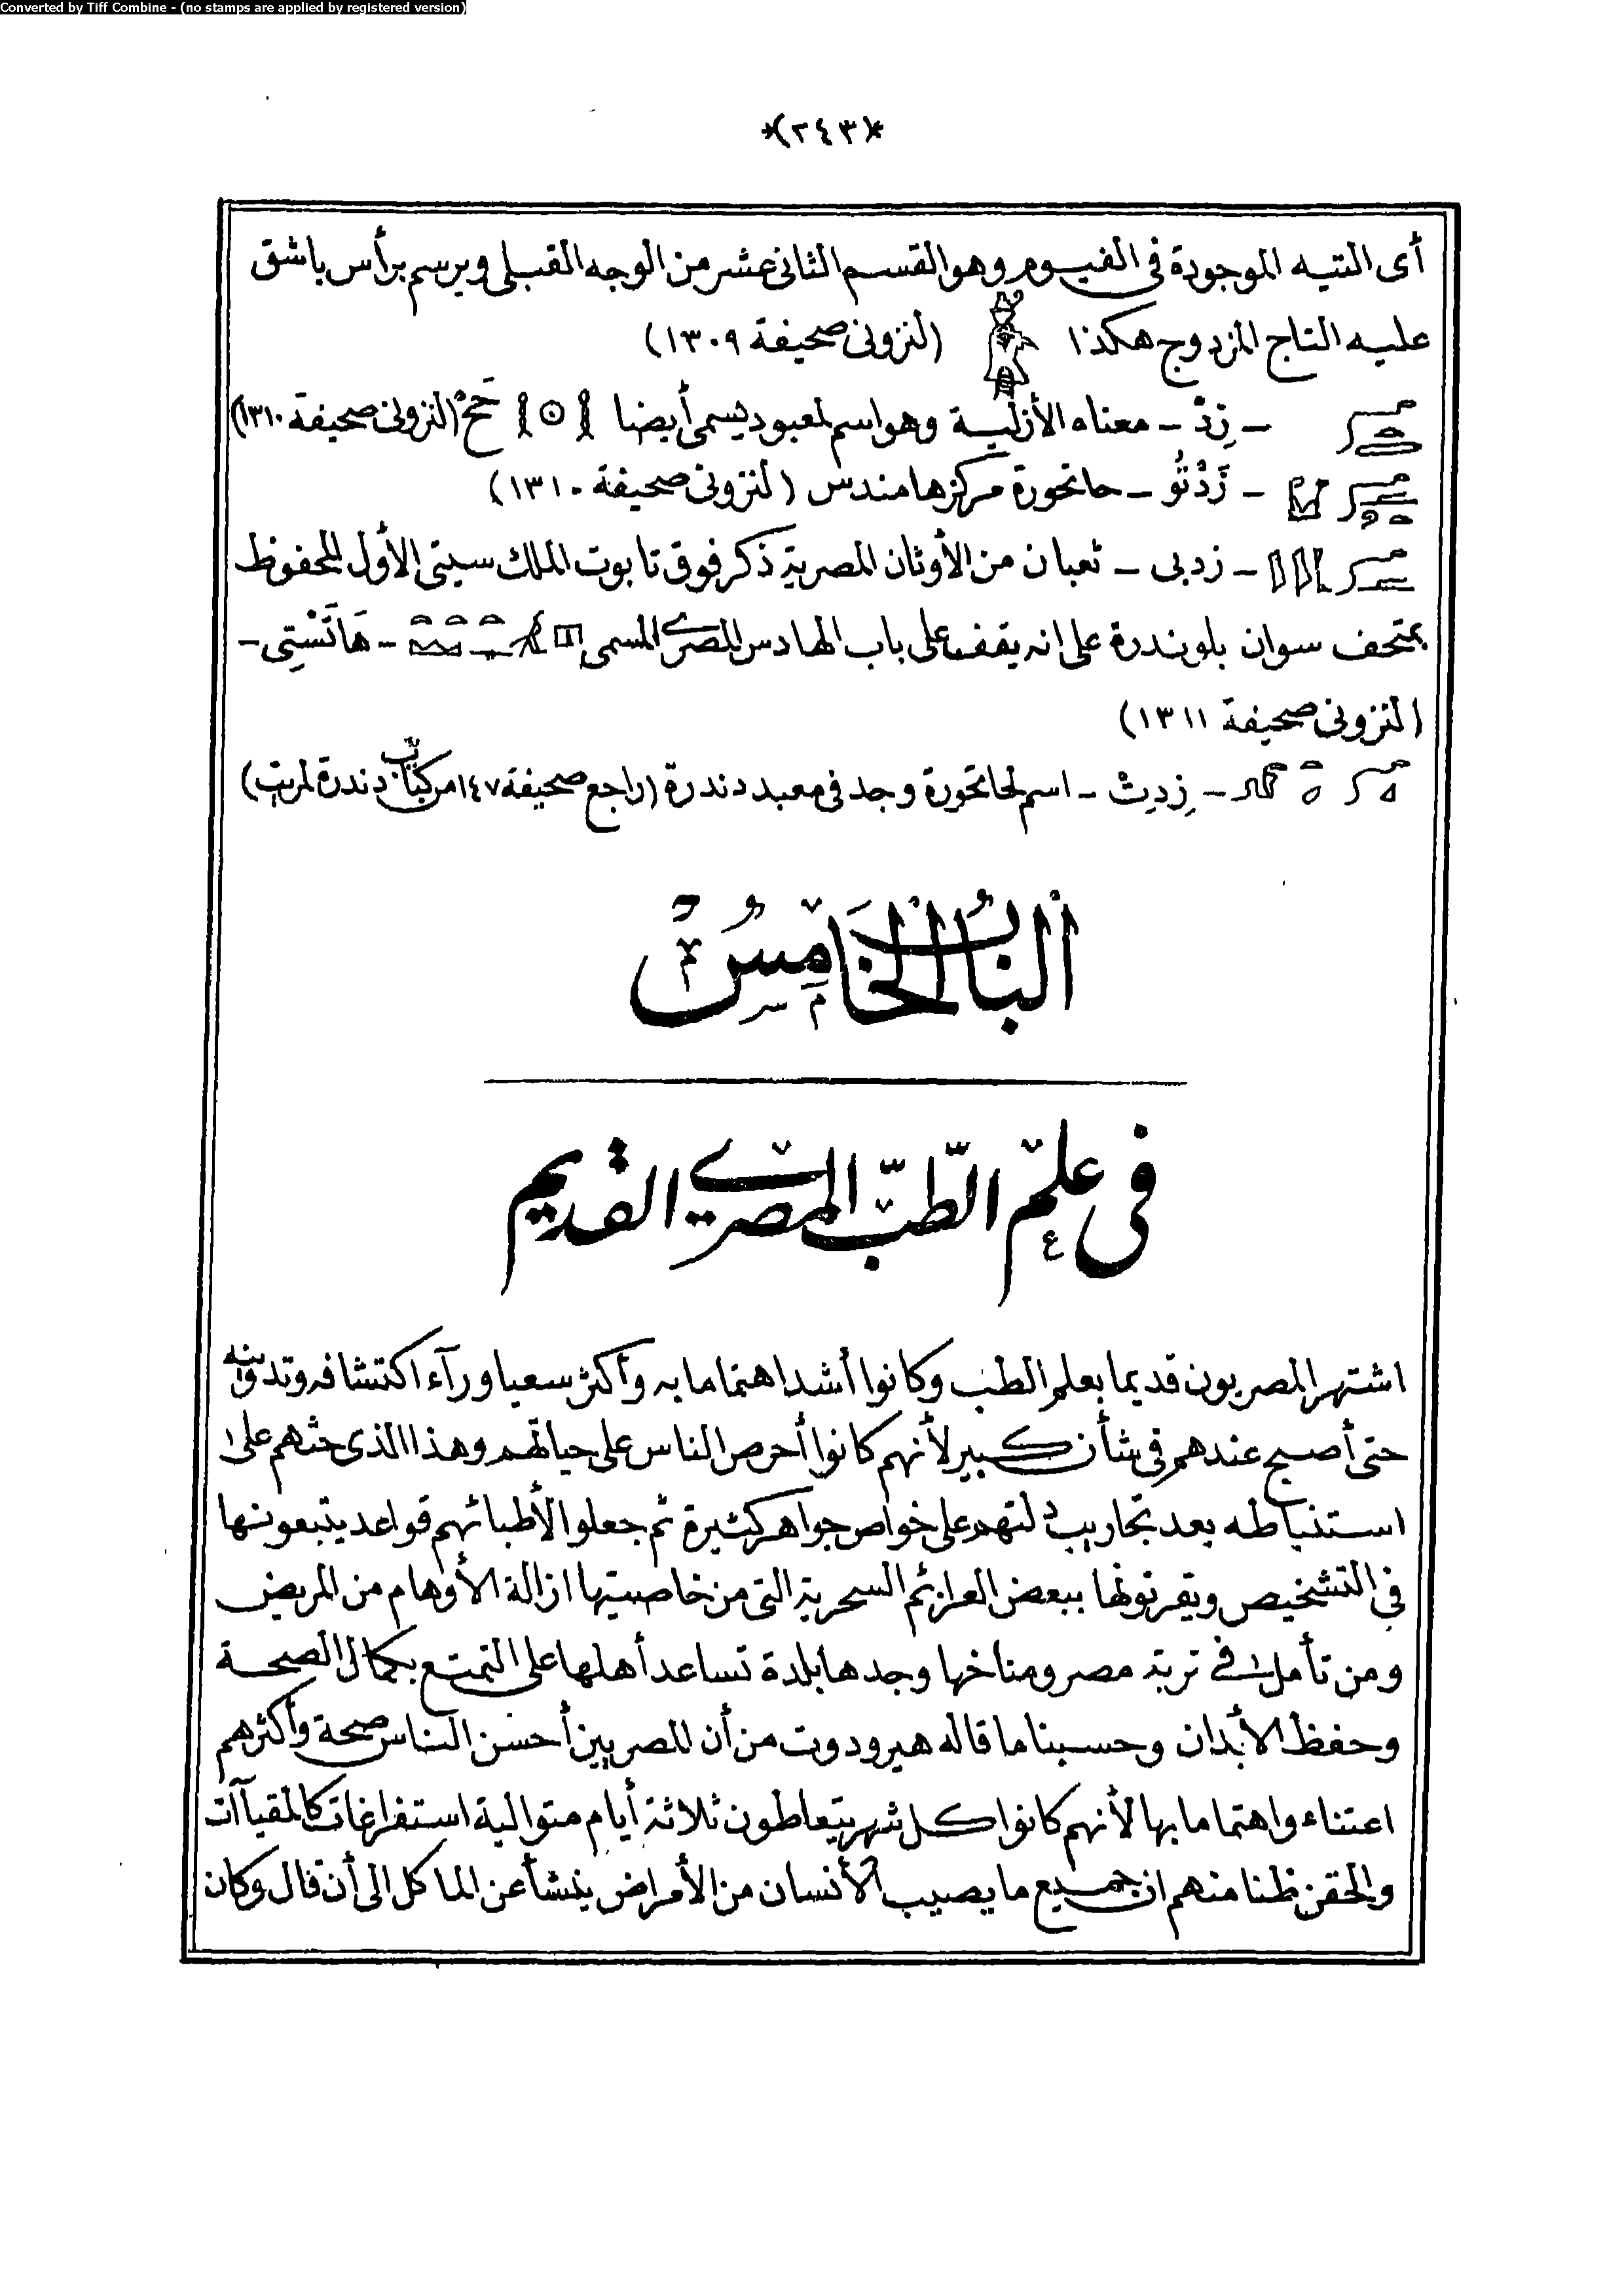 Converted by Tiff Combine - (no stamps are applied by registered version)
*(٢٤٣)*
أى التيه الموجودة فى الفيوم وهو القسم الثانى عشر من الوجه القبلى ويرسم برأس باشق
عليه التاج المزدوج هكذا (لنزونى صحيفة ١٣٠٩)
- زِدْ - معناه الأزلية وهو اسم لمعبود يسمى أيضا حَحْ (لنزونى صحيفة ١٣١٠)
- زَدْتُو - حاتحورة مركزها مندس (لنزونى صحيفة ١٣١٠)
- زدبى - ثعبان من الأوثان المصرية ذكر فوق تابوت الملك سيتى الأول المحفوظ
بمتحف سوان بلوندرة على انه يقف على باب الهادس المصرى المسمى - هَاتَسْتِى -
(لنزونى صحيفة ١٣١١)
- زِدِتْ - اسم لحاتحورة وجد فى معبد دندرة (راجع صحيفة ١٤٧ من كتاب دندرة لمريت)
البَابُ الخَامِسُ
فى علم الطّبّ المصرى القديم
اشتهر المصريون قديما بعلم الطب وكانوا أشد اهتماما به وأكثر سعيا ورآء اكتشافه وتدوينه
حتى أصبح عندهم فى شأن كبير لأنهم كانوا أحرص الناس على حياتهم وهذا الذى حثهم على
استنباطه بعد تجاريب دلتهم على خواص جواهر كثيرة ثم جعلوا لأطبائهم قواعد يتبعونها
فى التشخيص ويقرنونها ببعض العزائم السحرية التى من خاصيتها ازالة الأوهام من المريض
ومن تأمل فى تربة مصر ومناخها وجدها بلدة تساعد أهلها على التمتع بكمال الصحة
وحفظ الأبدان وحسبنا ما قاله هيرودوت من أن المصريين أحسن الناس صحة وأكثرهم
اعتناء واهتماما بها لأنهم كانوا كل شهر يتعاطون ثلاثة أيام متوالية استفراغات كالمقيآت
والحقن ظنا منهم ان جميع ما يصيب الأنسان من الأمراض ينشأ عن المآكل الى أن قال وكان